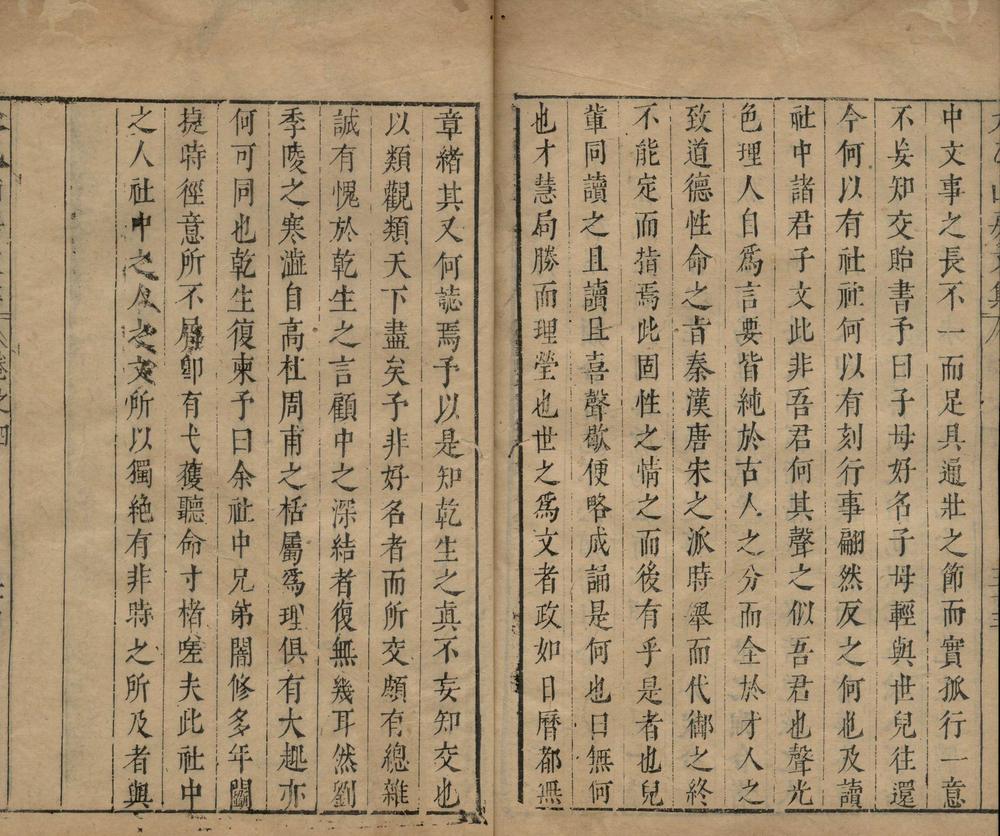 中文事之長不一而足具通壯之節而實孤行一意
不妄知交貽書予曰子毋好名子毋輕與世兒往還
今何以有社社何以有刻行事翩然反之何也及讀
社中諸君子文此非吾君何其聲之似吾君也聲光
色理人自爲言要皆純於古人之分而全於才人之
致道德性命之旨秦漢唐宋之派時舉而代御之終
不能定而指焉此固性之情之而後有乎是者也兒
軰同讀之且讀且喜聲歇便略成誦是何也曰無何
也才慧局勝而理瑩也世之爲文者政如日曆都無
章緒其又何誌焉予以是知乾生之真不妄知交也
以類觀類天下盡矣予非好名者而所交頗有總雜
誠有愧於乾生之言顧中之深結者復無幾耳然劉
季陵之寒澁自高杜周甫之栝屬爲理俱有大趣亦
何可同也乾生復柬予曰余社中兄弟闇修多年闢
捷時徑意所不屑卽有弋獲聽命寸楮嗟夫此社中
之人社中之人之文所以獨絶有非時之所及者與
卷之四